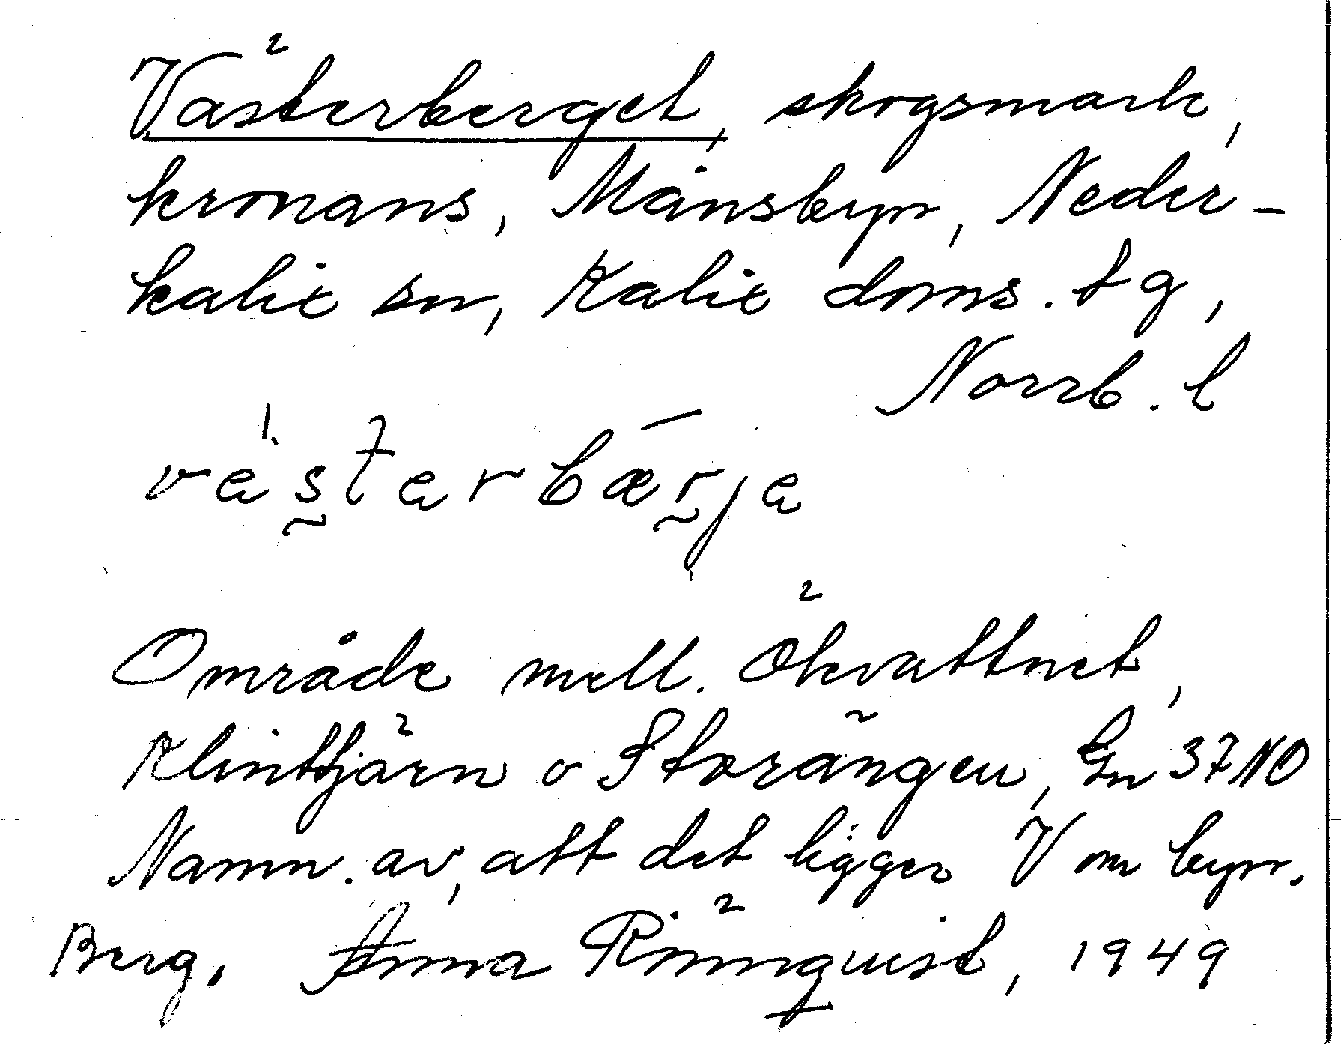 Västerberget, skogsmark,
kronans, Månsbyn, Neder-
kalix sn, Kalix doms. tg,
Norrb. l
västerbærja
Område mell. Ökvattnet,
Klinttjärn o Storängen, Gn 37 NO
Namn. av, att det ligger V om byn.
Berg. Anna Rönnquist, 1949